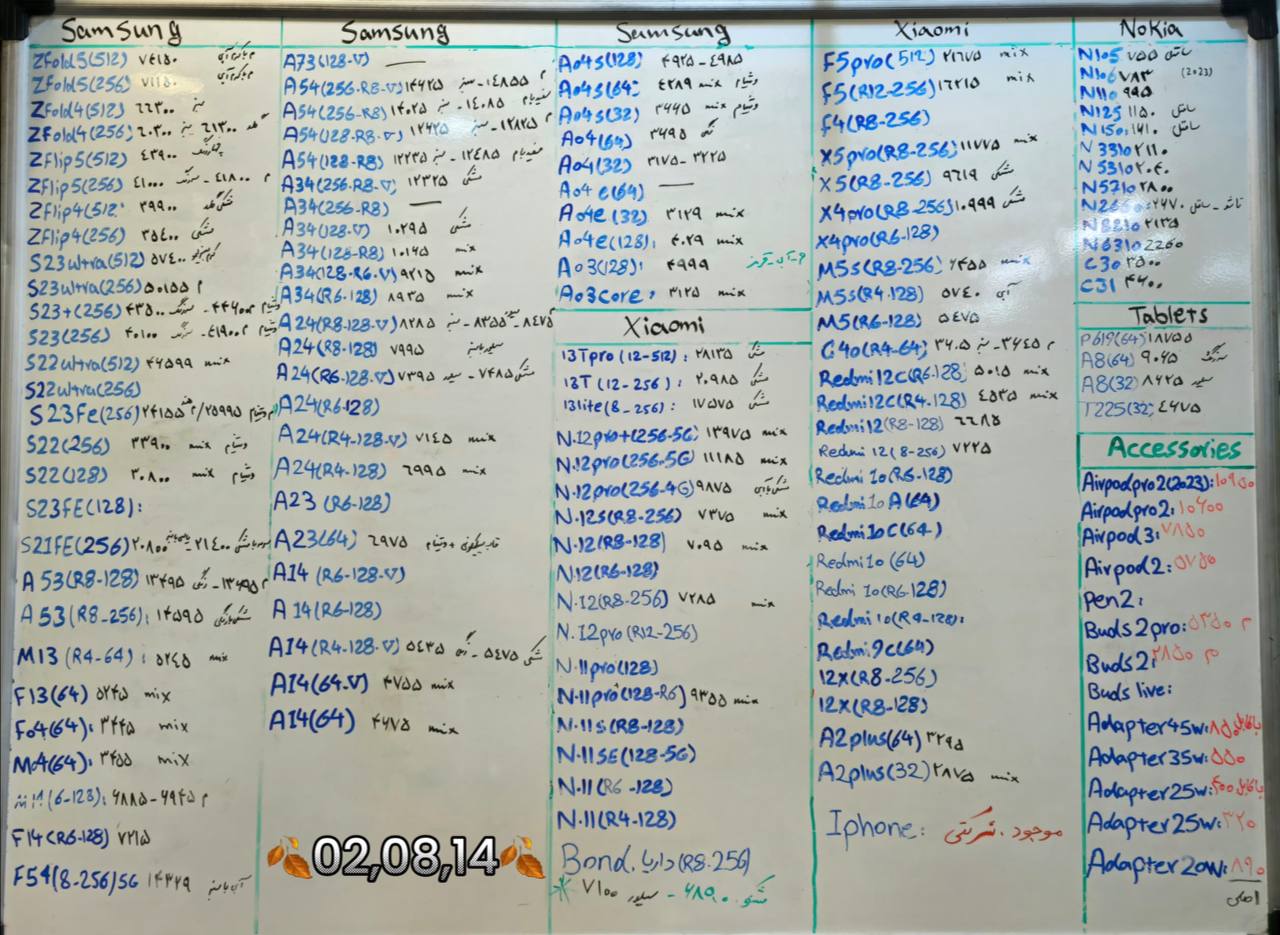 Samsung
ZFold5(512) ۷۴۱۵۰
ZFold5(256) ۷۱۱۵۰
ZFold4(512) ۶۶۳۰۰ سبز
ZFold4(256) ۶۰۳۰۰ سبز ۶۱۳۰۰
ZFlip5(512) ۴۳۹۰۰
ZFlip5(256) ۴۱۰۰۰ - ۴۱۸۰۰ م
ZFlip4(512) ۳۹۹۰۰
ZFlip4(256) ۳۵۴۰۰ مشکی
S23ultra(512) ۵۷۴۰۰
S23ultra(256) ۵۰۱۵۵ م
S23+(256) ۴۳۵۰۰ - ۴۴۶۰۰
S23(256) ۴۰۱۰۰ - ۴۱۹۰۰
S22ultra(512) ۴۶۵۹۹ mix
S22ultra(256)
S23Fe(256) ۲۴۱۵۵/۲۵۹۹۵
S22(256) ۳۳۹۰۰ mix ویتنام
S22(128) ۳۰۸۰۰ mix ویتنام
S23FE(128):
S21FE(256) ۲۰۸۰۰ ۲۱۴۰۰
A53(R8-128) ۱۳۴۹۵
A53(R8-256): ۱۴۵۹۵
M13 (R4-64): ۵۲۴۵ mix
F13(64) ۵۲۴۵ mix
F04(64): ۳۴۴۵ mix
M04(64): ۳۴۵۵ mix
(6-128): ۶۸۸۵ - ۶۹۴۵ م
F14(R6-128) ۷۲۱۵
F54(8-256)5G ۱۴۳۲۹
Samsung
A73(128-V) —
A54(256-R8-V) ۱۴۴۲۵ سبز - ۱۴۸۵۵ م
A54(256-R8) ۱۴۰۲۵ - ۱۴۰۸۵
A54(128-R8-V) ۱۲۶۲۵ سبز - ۱۲۸۲۵ م
A54(128-R8) ۱۲۲۳۵ سبز - ۱۲۴۸۵
A34(256-R8-V) ۱۲۳۲۵ مشکی
A34(256-R8) —
A34(128-V) ۱۰۲۹۵ مشکی
A34(128-R8) ۱۰۱۶۵ mix
A34(128-R6-V) ۹۲۱۵ mix
A34(R6-128) ۸۹۳۵ mix
A24(R8-128-V) ۸۲۸۵ سبز - ۸۳۵۵ - ۸۴۷۵
A24(R8-128) ۷۹۹۵
A24(R6-128-V) ۷۳۹۵ سفید - ۷۴۸۵ مشکی
A24(R6-128)
A24(R4-128-V) ۷۱۴۵ mix
A24(R4-128) ۶۹۹۵ mix
A23 (R6-128)
A23(64) ۶۹۷۵
A14 (R6-128-V)
A14(R6-128)
A14(R4-128-V) ۵۴۳۵ - ۵۴۷۵ مشکی
A14(64-V) ۴۷۵۵ mix
A14(64) ۴۶۷۵ mix
02,08,14
Samsung
A04s(128) ۴۹۲۵ - ۴۹۸۵
A04s(64) ۴۲۸۹ mix ویتنام
A04s(32) ۳۶۶۵ mix ویتنام
A04(64) ۳۶۹۵
A04(32) ۳۱۷۵ - ۳۲۲۵
A04e(64) —
A04e(32) ۳۱۲۹ mix
A04e(128): ۴۰۲۹ mix
A03(128): ۴۹۹۹ م-آبی-قرمز
A03core: ۳۱۲۵ mix
Xiaomi
13Tpro(12-512): ۲۸۱۳۵ مشکی
13T(12-256): ۲۰۹۸۵ مشکی
13lite(8-256): ۱۷۵۷۵ مشکی
N.12pro+(256-5G) ۱۳۹۷۵ mix
N.12pro(256-5G) ۱۱۱۸۵ mix
N.12pro(256-4G) ۹۸۷۵
N.12s(R8-256) ۷۳۷۵ mix
N.12(R8-128) ۷۰۹۵ mix
N.12(R6-128)
N.12(R8-256) ۷۲۸۵ mix
N.12pro(R12-256)
N.11pro(128)
N.11pro(128-R6) ۹۳۵۵ mix
N.11s(R8-128)
N.11SE(128-5G)
N.11(R6-128)
N.11(R4-128)
Bond. داریا (R8-256)
* ۷۱۰۰ سیلور - ۶۸۵۰۰ مشکی
Xiaomi
F5pro(512) ۲۱۶۷۵ mix
F5(R12-256) ۱۶۲۱۵ mix
F4(R8-256)
X5pro(R8-256) ۱۱۷۷۵ mix
X5(R8-256) ۹۶۱۹ مشکی
X4pro(R8-256) ۱۰۹۹۹ مشکی
X4pro(R6-128)
M5s(R8-256) ۶۴۵۵ mix
M5s(R4-128) ۵۷۴۰ آبی
M5(R6-128) ۵۴۷۵
C40(R4-64) ۳۶۰۵ سبز - ۳۶۴۵ م
Redmi12C(R6-128) ۵۰۱۵ mix
Redmi12C(R4-128) ۴۵۳۵ mix
Redmi12(R8-128) ۶۶۸۵
Redmi 12(8-256) ۷۲۲۵
Redmi 10(R6-128)
Redmi10 A(64)
Redmi10C(64)
Redmi10(64)
Redmi 10(R6-128)
Redmi 10(R4-128):
Redmi9C(64)
12X(R8-256)
12X(R8-128)
A2plus(64) ۳۲۹۵
A2plus(32) ۲۸۷۵ mix
Iphone: موجود، شرکتی
Nokia
N105 ۷۵۵ سانتی
N106 ۷۸۳ (2023)
N110 ۹۹۵
N125 ۱۱۵۰ سانتی
N150: ۱۴۱۰ سانتی
N3310 ۲۱۱۰
N5310 ۲۰۴۰
N5710 ۲۸۰۰
N2660: ۲۶۷۰
N8210 ۲۱۳۵
N6310 2260
C30 ۳۵۰۰
C31 ۴۶۰۰
Tablets
P619(64) ۱۸۷۵۵
A8(64) ۹۰۴۵
A8(32) ۸۶۲۵ سفید
T225(32) ۶۴۷۵
Accessories
Airpodpro2(2023): ۱۰۹۵۰
Airpodpro2: ۱۰۶۰۰
Airpod3: ۷۸۵۰
Airpod2: ۵۷۵۰
Pen2:
Buds2pro: ۵۳۵۰ م
Buds2: ۲۸۵۰ م
Buds live:
Adapter45w: ۸۵۰ باکابل
Adapter35w: ۵۵۰
Adapter25w: ۴۰۰ باکابل
Adapter25w: ۳۲۰
Adapter20w: ۸۹۰
اصلی